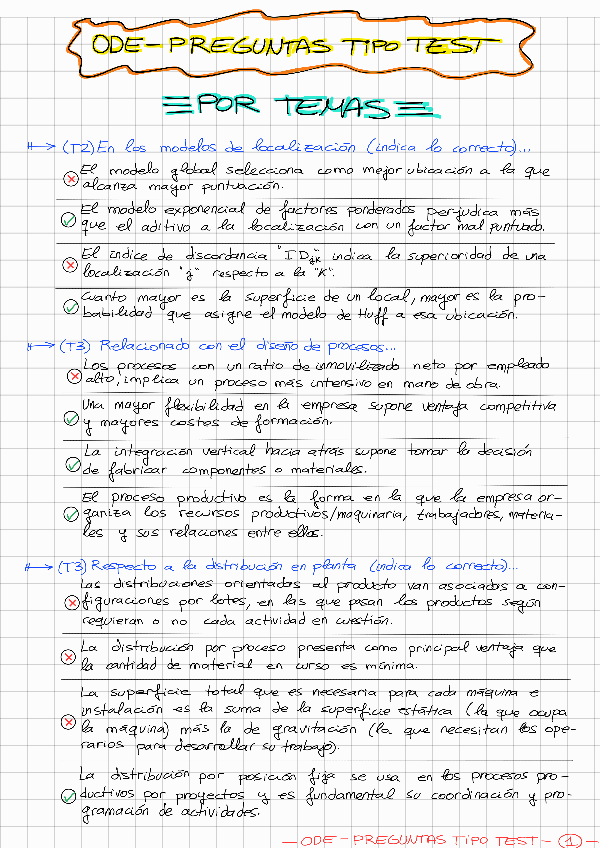 ODE - PREGUNTAS TIPO TEST
POR TEMAS
(T2) En los modelos de localización (indica lo correcto)...
El modelo global selecciona como mejor ubicación a la que
alcanza mayor puntuación.
El modelo exponencial de factores ponderados perjudica más
que el aditivo a la localización con un factor mal puntuado.
El índice de discordancia "IDjk" indica la superioridad de una
localización "j" respecto a la "K".
Cuanto mayor es la superficie de un local, mayor es la pro-
babilidad que asigne el modelo de Huff a esa ubicación.
(T3) Relacionado con el diseño de procesos...
Los procesos con un ratio de inmovilizado neto por empleado
alto, implica un proceso más intensivo en mano de obra.
Una mayor flexibilidad en la empresa supone ventaja competitiva
y mayores costos de formación.
La integración vertical hacia atrás supone tomar la decisión
de fabricar componentes o materiales.
El proceso productivo es la forma en la que la empresa or-
ganiza los recursos productivos/maquinaria, trabajadores, materia-
les y sus relaciones entre ellos.
(T3) Respecto a la distribución en planta (indica lo correcto)...
Las distribuciones orientadas al producto van asociadas a con-
figuraciones por lotes, en las que pasan los productos según
requieran o no cada actividad en cuestión.
La distribución por proceso presenta como principal ventaja que
la cantidad de material en curso es mínima.
La superficie total que es necesaria para cada máquina e
instalación es la suma de la superficie estática (la que ocupa
la máquina) más la de gravitación (la que necesitan los ope-
rarios para desarrollar su trabajo).
La distribución por posición fija se usa en los procesos pro-
ductivos por proyectos y es fundamental su coordinación y pro-
gramación de actividades.
- ODE - PREGUNTAS TIPO TEST - 1 -